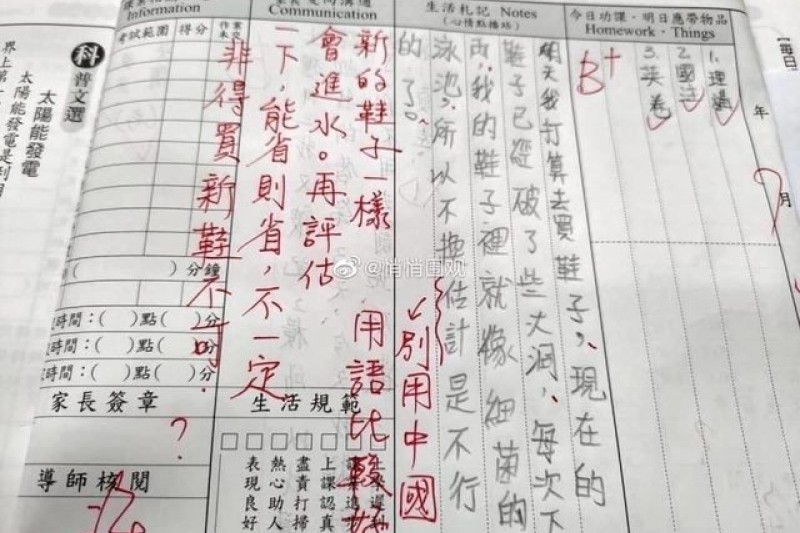 【每日
今日功課・明日應帶物品
Homework・Things
年
月
3.英卷
B+
生活札記 Notes
(心情點播站)
明天我打算去買鞋子,現在的
鞋子已經破了些大洞,每次下
雨,我的鞋子裡就像細菌的
泳池,所以不換估計是不行
的了。
別用中國
用語比較好
Communication
新的鞋子一樣
會進水。再評估
一下,能省則省,不一定
非得買新鞋不可.
?
生活規範
上課認真
盡責打掃
熱心助人
表現良好
Information
考試範圍
得分
( )分鐘
時間:( )點( )分
時間:( )點( )分
時間:( )點( )分
家長簽章
導師核閱
科普文選
太陽能發電
太陽能發電是利用
界上第一
@悄悄围观